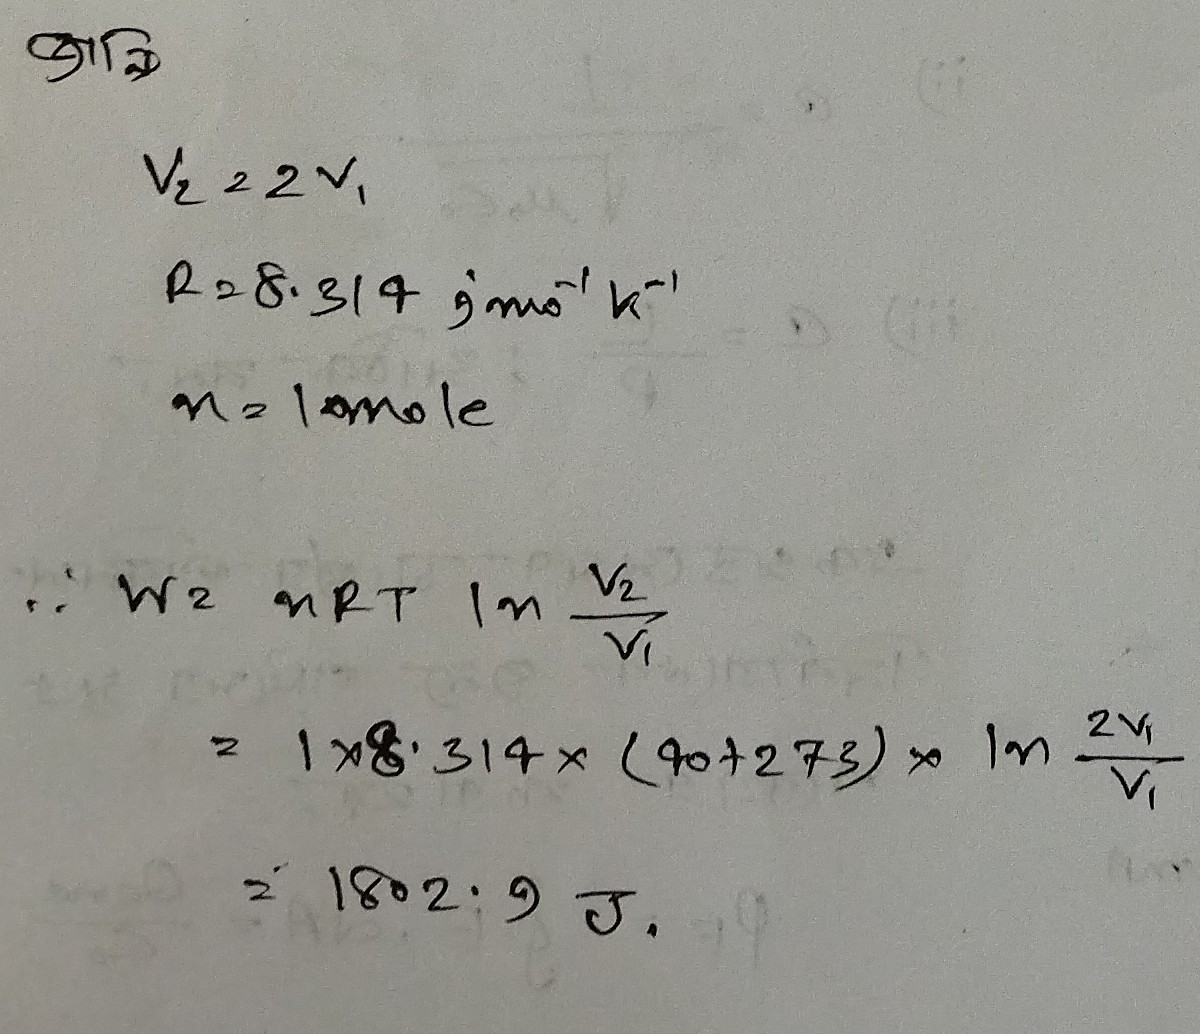 জানি
V₂ = 2V₁
R = 8.314 j mol⁻¹ K⁻¹
n = 1 mole
∴ W = nRT ln V₂/V₁
= 1 × 8.314 × (40+273) × ln 2V₁/V₁
= 1802.9 J.